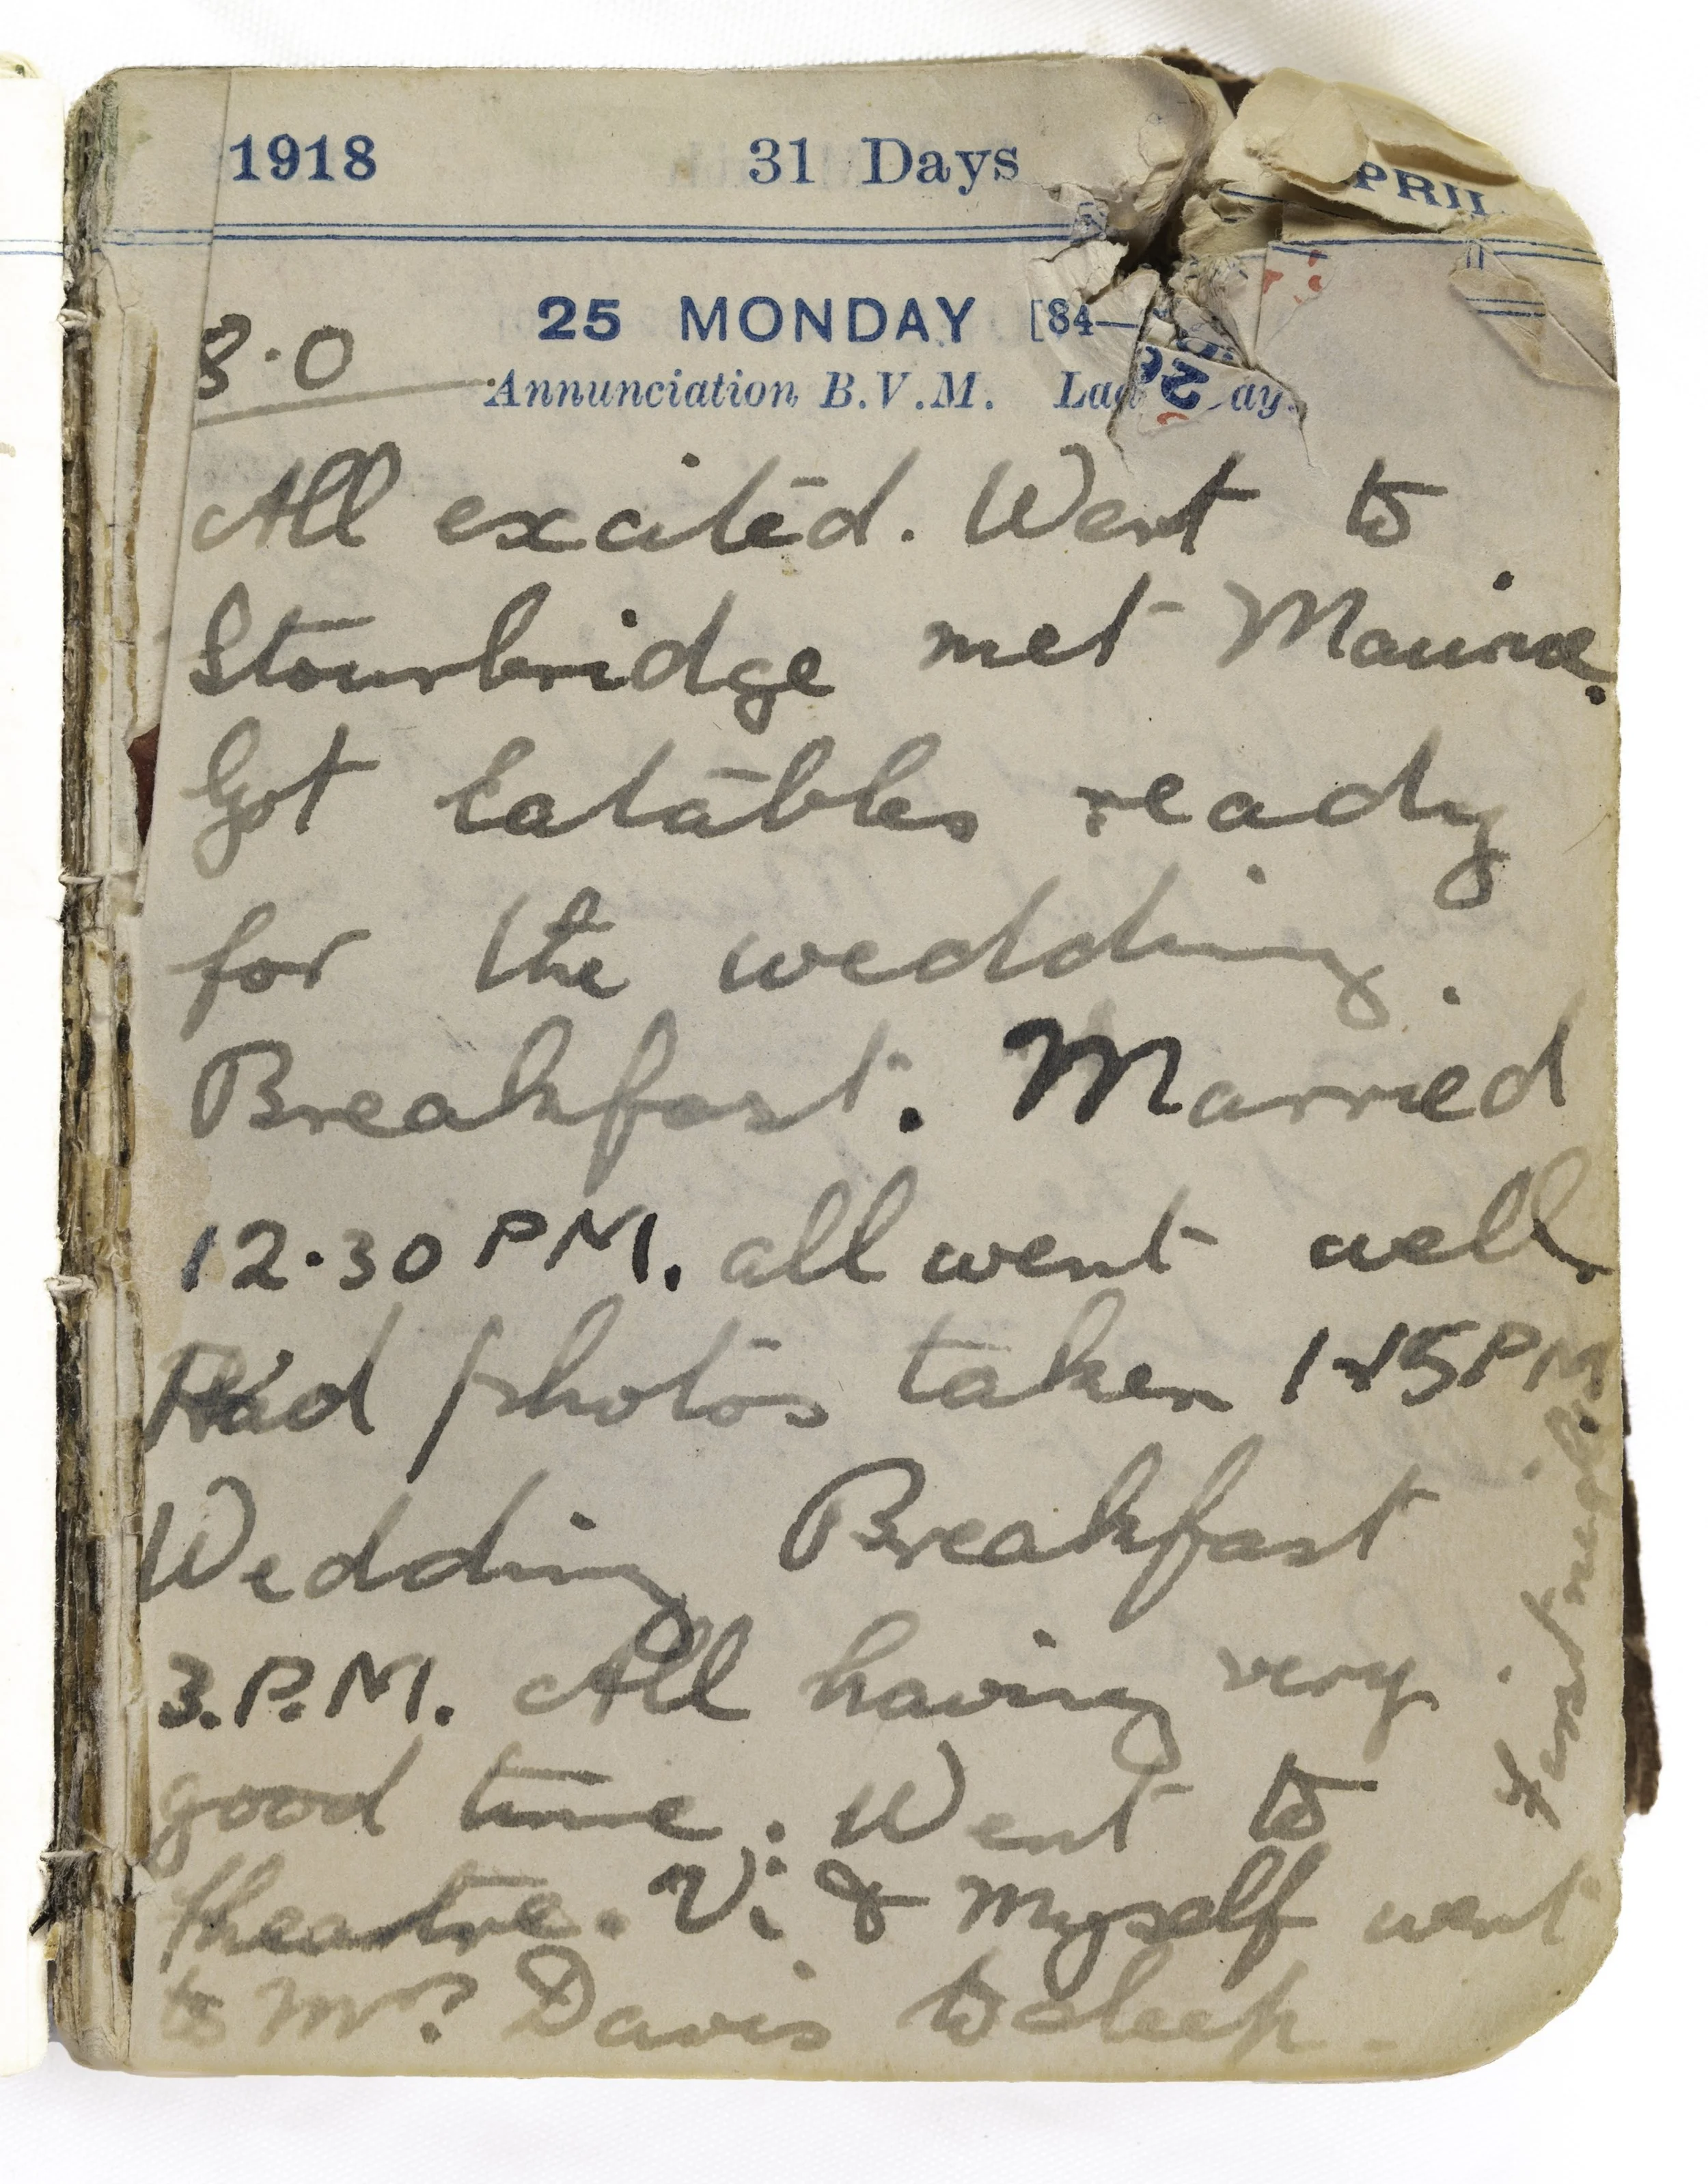 1918 31 Days PRIL
25 MONDAY [84—
8.0
Annunciation B.V.M. Lad ay.
All excited. Went to
Stourbridge met Maurice.
Got Eatables ready
for the wedding.
Breakfast. Married
12.30 PM. all went well.
Had photos taken 1-15 PM.
Wedding Breakfast
3.P.M. All having very
good time. Went to
theatre. Vi & Myself went
to Mrs. Davis to sleep.
First night.